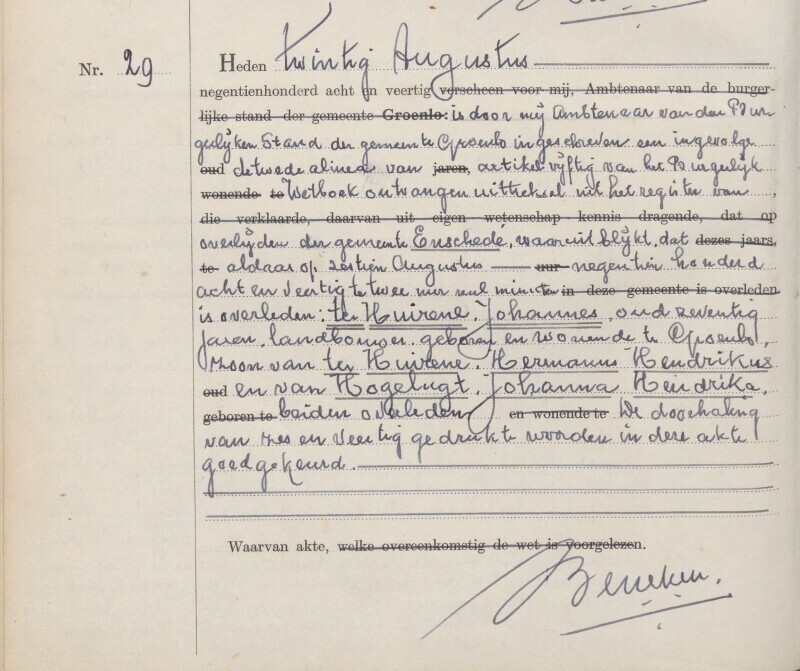 Nr. 29
Heden twintig Augustus
negentienhonderd acht en veertig verscheen voor mij, Ambtenaar van de burger-
lijke stand der gemeente Groenlo: is door mij Ambtenaar van den Bur
gelijken Stand der gemeente Groenlo ingeschreven een ingevolge
oud de twede alinea van jaren, artikel vijftig van het Burgelijk
wonende te Wetboek ontvangen uittreksel uit het register van
die verklaarde, daarvan uit eigen wetenschap kennis dragende, dat op
overlijden der gemeente Enschede, waaruit blijkt, dat dezes jaars,
te aldaar op zestien Augustus uur negentien honderd
acht en veertig te twee uur nul minuten in deze gemeente is overleden
is overleden: te Huirene, Johannes, oud zeventig
jaren, landbouwer, geboren en wonende te Groenlo,
zoon van te Huirene, Hermanus Hendrikus
oud en van Hogelugt, Johanna Hendrika,
geboren te beiden overleden en wonende te De doorhaling
van zes en veertig gedrukte woorden in deze akte
goedgekeurd.
Waarvan akte, welke overeenkomstig de wet is voorgelezen.
Beneken.